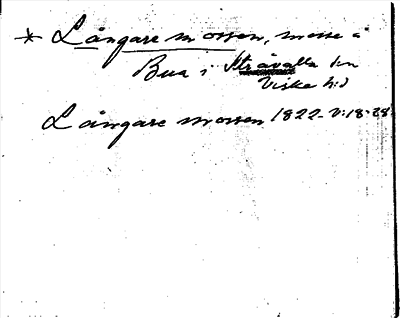 * Långare mossen, mosse å
Bua i Stråvalla sn
Viske hd
Långare mossen 1822-V:18-28